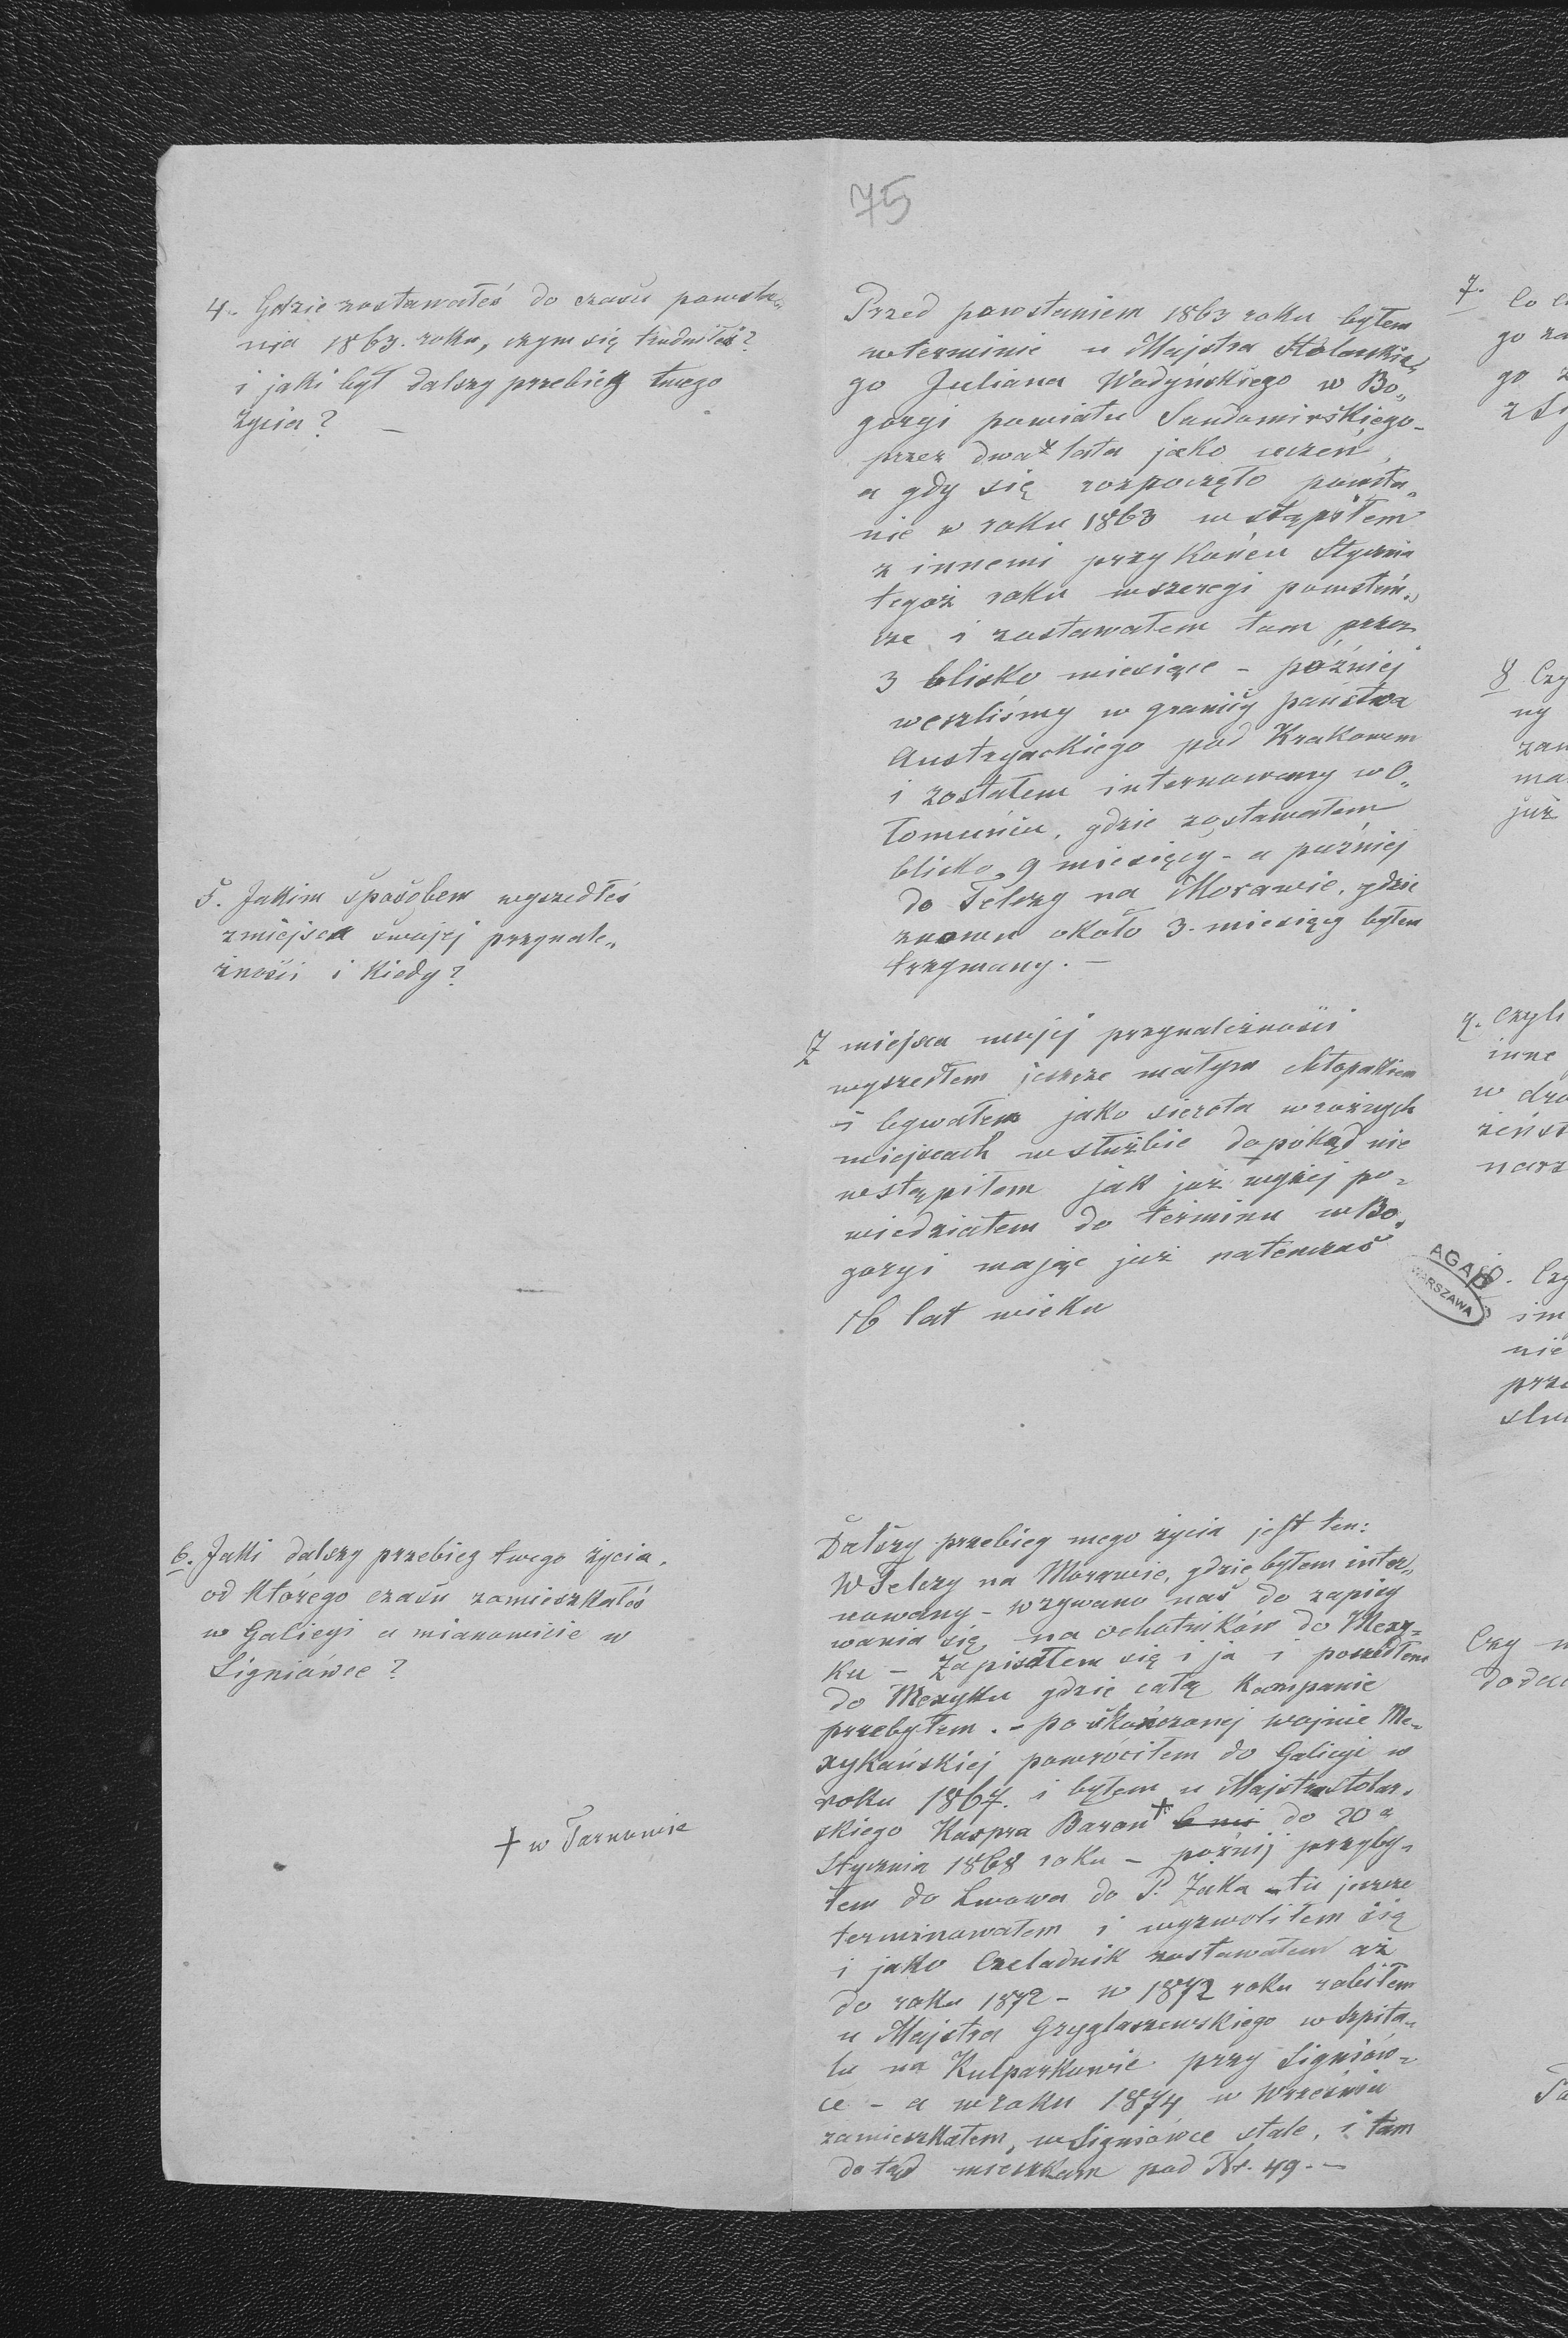 75
4. Gdzie zostawałeś do czasu powsta„
nia 1863. roku, czym się trudniłeś?
i jaki był dalszy przebieg twego
życia? —
Przed powstaniem 1863 roku byłem
w terminie u Majstra Stolarskie„
go Juliana Wadyńskiego w Bo„
goryi powiatu Sandomirskiego -
przez dwa lata jako uczeń,
a gdy się rozpoczęło powsta„
nie w roku 1863 wstąpiłem
z innemi przy końcu Stycznia
tegoż roku w szeregi powstań„
cze i zostawałem tam przez
3 blisko miesiące - później
weszliśmy w granicy państwa
Austryackiego pod Krakowem
i zostałem internowany w O„
łomuńcu, gdzie zostawałem
blisko 9 miesięcy - a puźniej
do Telczy na Morawie, gdzie
znowu około 3. miesięcy byłem
trzymany. —
5. Jakim sposobem wyszedłeś
z miejsca swojej przynale„
żności i kiedy?
Z miejsca mojej przynależności
wyszedłem jeszcze małym chłopakiem
i bywałem jako sierota w rożnych
miejscach w służbie dopókąd nie
wstąpiłem jak już wyżej po„
wiedziałem do terminu w Bo„
goryi mając już natenczas
16 lat wieku
6. Jaki dalszy przebieg twego życia,
od którego czasu zamieszkałeś
w Galicyi a mianowicie w
Signiówce?
Dalszy przebieg mego życia jest ten:
W Telczy na Morawie, gdzie byłem inter„
nowany - wzywano nas do zapisy
wania się na ochotników do Mexy„
ku - Zapisałem się i ja i poszedłem
do Mexyku gdzie całą kampanie
przebyłem. - po skończonej wojnie Me„
xykańskiej powróciłem do Galicyi w
roku 1867. i byłem u Majstra Stolar„
skiego Kaspra Baran + do 20 a
+ w Tarnowie
Stycznia 1868 roku - poźnij przyby„
łem do Lwowa do P. Żaka - tu jeszcze
terminowałem i wyzwoliłem się
i jako Czeladnik zostawałem aż
do roku 1872 - w 1872 roku robiłem
u Majstra Gryglaszewskiego w Szpita„
lu na Kulparkowie przy Signiów„
ce - a w roku 1874 w Wrześniu
zamieszkałem w Signiówce stale, i tam
do tąd mieszkam pod Nr. 49. —
7. Co
go
go
8 Czy
ny
już
9. Czyli
inne
w
10. Czy
nie
Czy
AGAD
WARSZAWA